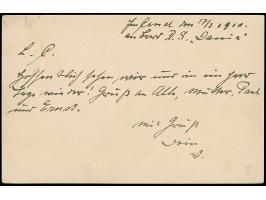 Im Canal den 17/3 1910.
an Bord R. S. „Dania"
L. C.
Hoffentlich sehen wir uns in ein paar
Tage wieder! Gruß an Alle, Mutter, Paul
und Ernst.
mit Gruß
Dein
W.